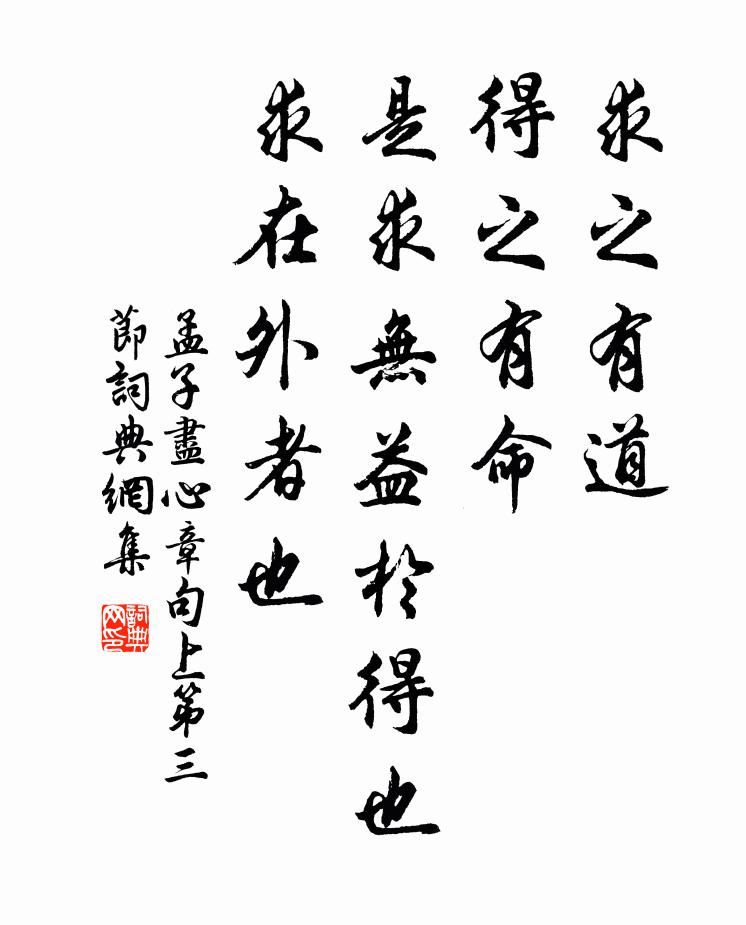 求之有道
得之有命
是求無益於得也
求在外者也
孟子盡心章句上第三
節詞典網集
詞典网印